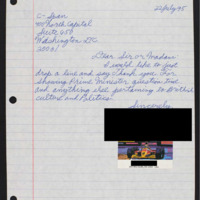 22 July 95
C-Span
400 North Capital
Suite 650
Washington D.C.
20001
Dear Sir or Madam
I would like to just
drop a line and say Thank you. For
showing Prime Minister question time
and anything else pertaining to British
culture and Politics.
Sincerely